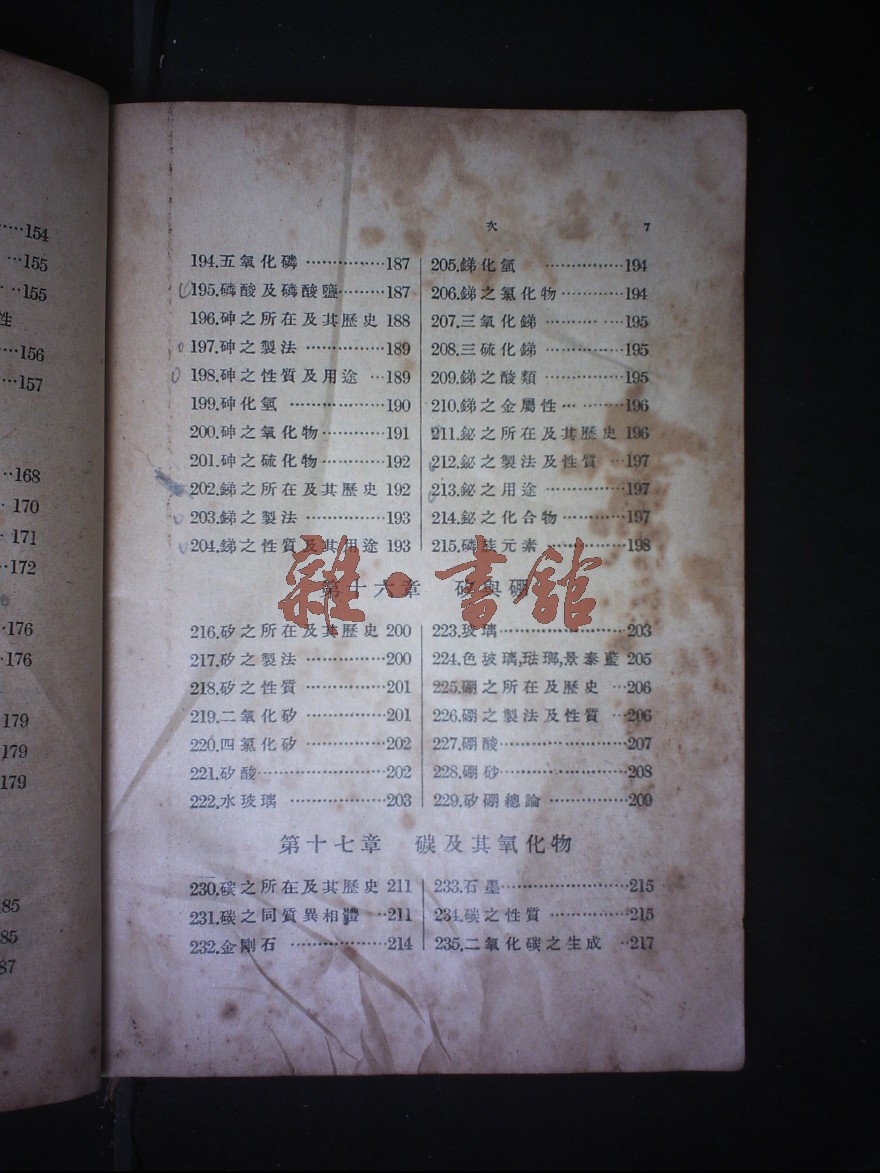 154
155
155
性
156
157
168
170
171
172
176
176
179
179
179
85
85
87
次 7
194.五氧化磷 ……………187
195.磷酸及磷酸鹽………187
196.砷之所在及其歷史 188
197.砷之製法 ……………189
198.砷之性質及用途 …189
199.砷化氫 ………………190
200.砷之氧化物…………191
201.砷之硫化物…………192
202.銻之所在及其歷史 192
203.銻之製法 ……………193
204.銻之性質及其用途 193
205.銻化氫 ……………194
206.銻之氯化物…………194
207.三氧化銻 ……………195
208.三硫化銻 ……………195
209.銻之酸類 ……………195
210.銻之金屬性… ………196
211.鉍之所在及其歷史 196
212.鉍之製法及性質 …197
213.鉍之用途 ……………197
214.鉍之化合物…………197
215.磷族元素 ……………198
第十六章 矽與硼
雜·書館
216.矽之所在及其歷史 200
217.矽之製法 ……………200
218.矽之性質 ……………201
219.二氧化矽 ……………201
220.四氯化矽 ……………202
221.矽酸……………………202
222.水玻璃 ………………203
223.玻璃……………………203
224.色玻璃,琺瑯,景泰藍 205
225.硼之所在及歷史 …206
226.硼之製法及性質 …206
227.硼酸……………………207
228.硼砂……………………208
229.矽硼總論 ……………209
第十七章 碳及其氧化物
230.碳之所在及其歷史 211
231.碳之同質異相體 …211
232.金剛石 ………………214
233.石墨……………………215
234.碳之性質 ……………215
235.二氧化碳之生成 …217